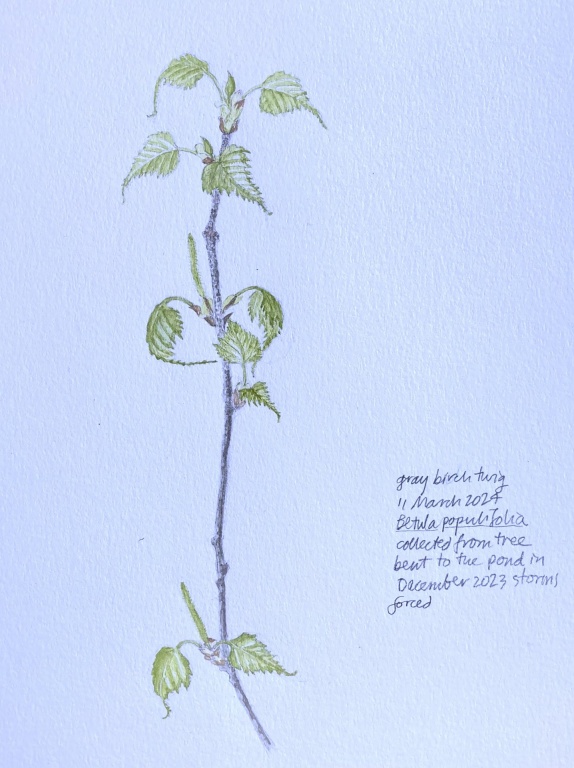 gray birch twig
11 March 2024
Betula populifolia
collected from tree
bent to the pond in
December 2023 storms
forced